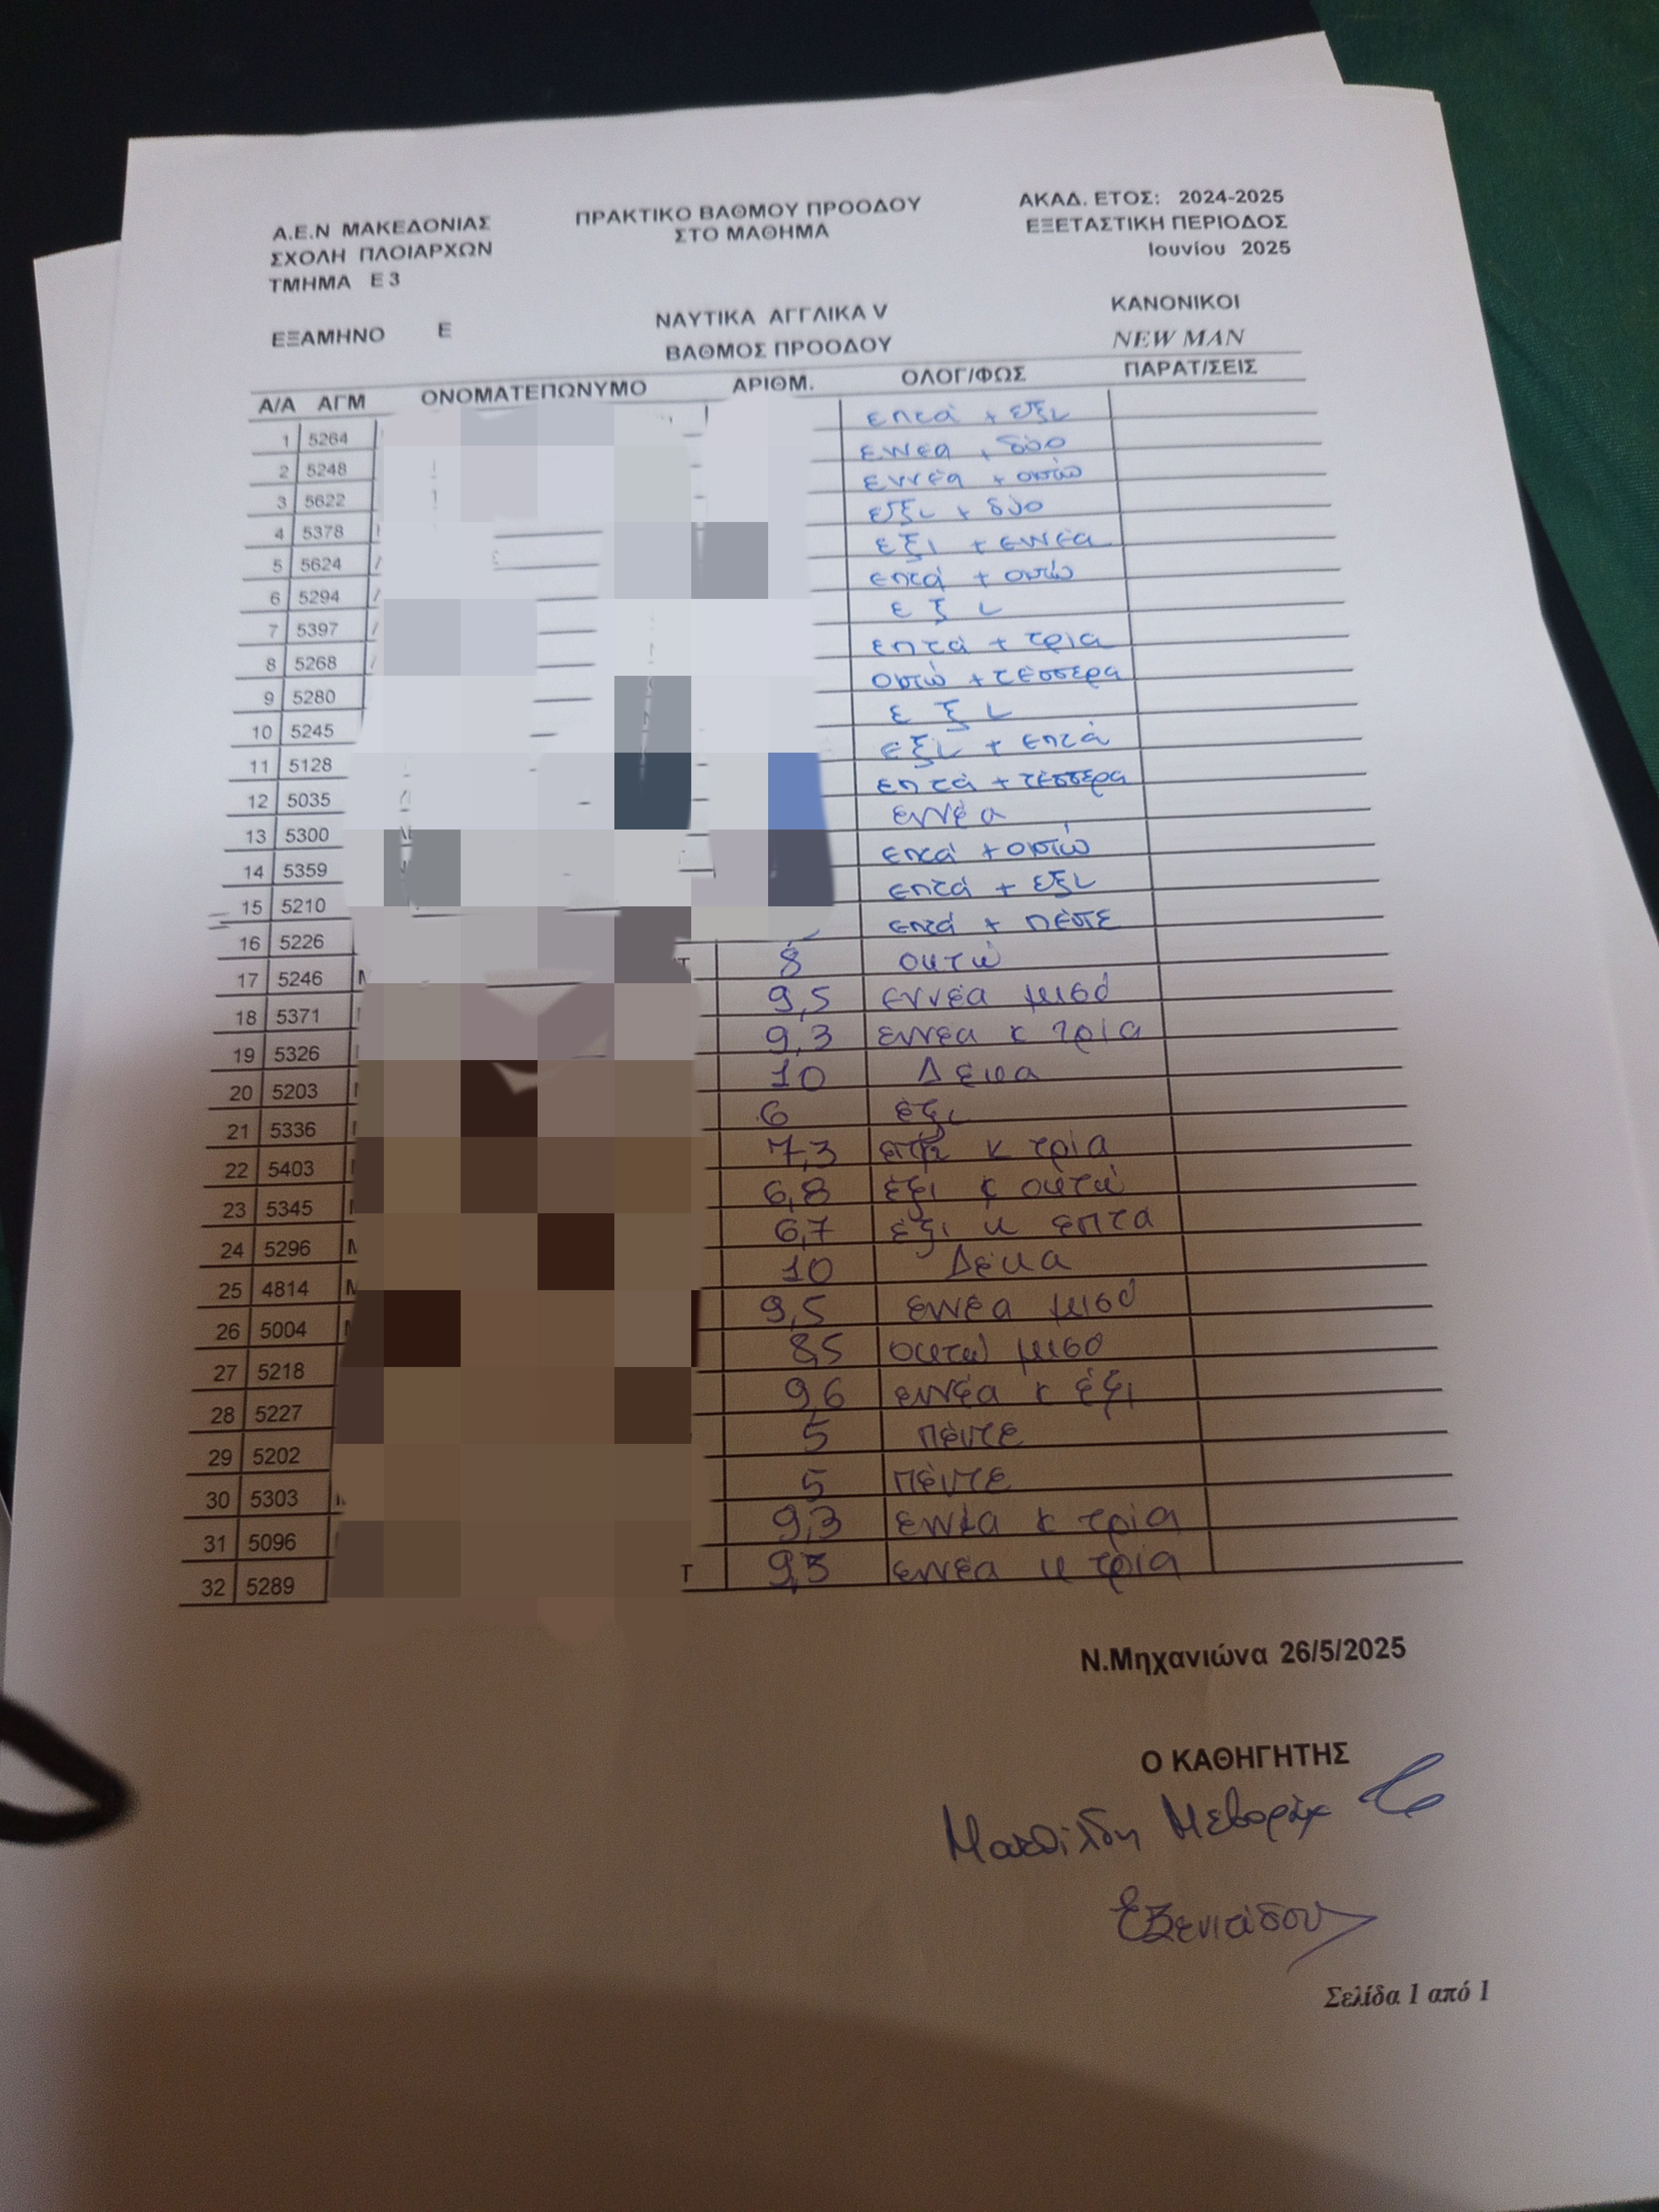 Α.Ε.Ν ΜΑΚΕΔΟΝΙΑΣ ΠΡΑΚΤΙΚΟ ΒΑΘΜΟΥ ΠΡΟΟΔΟΥ ΑΚΑΔ. ΕΤΟΣ: 2024-2025
ΣΧΟΛΗ ΠΛΟΙΑΡΧΩΝ ΣΤΟ ΜΑΘΗΜΑ ΕΞΕΤΑΣΤΙΚΗ ΠΕΡΙΟΔΟΣ
ΤΜΗΜΑ Ε3 Ιουνίου 2025
ΝΑΥΤΙΚΑ ΑΓΓΛΙΚΑ V ΚΑΝΟΝΙΚΟΙ
ΕΞΑΜΗΝΟ Ε ΒΑΘΜΟΣ ΠΡΟΟΔΟΥ NEW MAN
Α/Α ΑΓΜ ΟΝΟΜΑΤΕΠΩΝΥΜΟ ΑΡΙΘΜ. ΟΛΟΓ/ΦΩΣ ΠΑΡΑΤ/ΣΕΙΣ
1 5264 επτά + εξι
2 5248 εννέα + δύο
3 5622 εννέα + οκτώ
4 5378 εξι + δύο
5 5624 εξι + εννέα
6 5294 επτά + οκτώ
7 5397 εξι
8 5268 επτά + τρία
9 5280 οκτώ + τέσσερα
10 5245 εξι
11 5128 εξι + επτά
12 5035 επτά + τέσσερα
13 5300 εννέα
14 5359 επτά + οκτώ
15 5210 επτά + εξι
16 5226 επτά + πέντε
17 5246 8 οκτώ
18 5371 9,5 εννέα μισό
19 5326 9,3 εννέα κ τρία
20 5203 10 Δέκα
21 5336 6 έξι
22 5403 7,3 επτά κ τρία
23 5345 6,8 έξι κ οκτώ
24 5296 6,7 έξι κ επτά
25 4814 10 Δέκα
26 5004 9,5 εννέα μισό
27 5218 8,5 οκτώ μισό
28 5227 9,6 εννέα κ έξι
29 5202 5 πέντε
30 5303 5 πέντε
31 5096 9,3 εννέα κ τρία
32 5289 Τ 9,3 εννέα κ τρία
Ν.Μηχανιώνα 26/5/2025
Ο ΚΑΘΗΓΗΤΗΣ
Ματθίλδη
Σελίδα 1 από 1